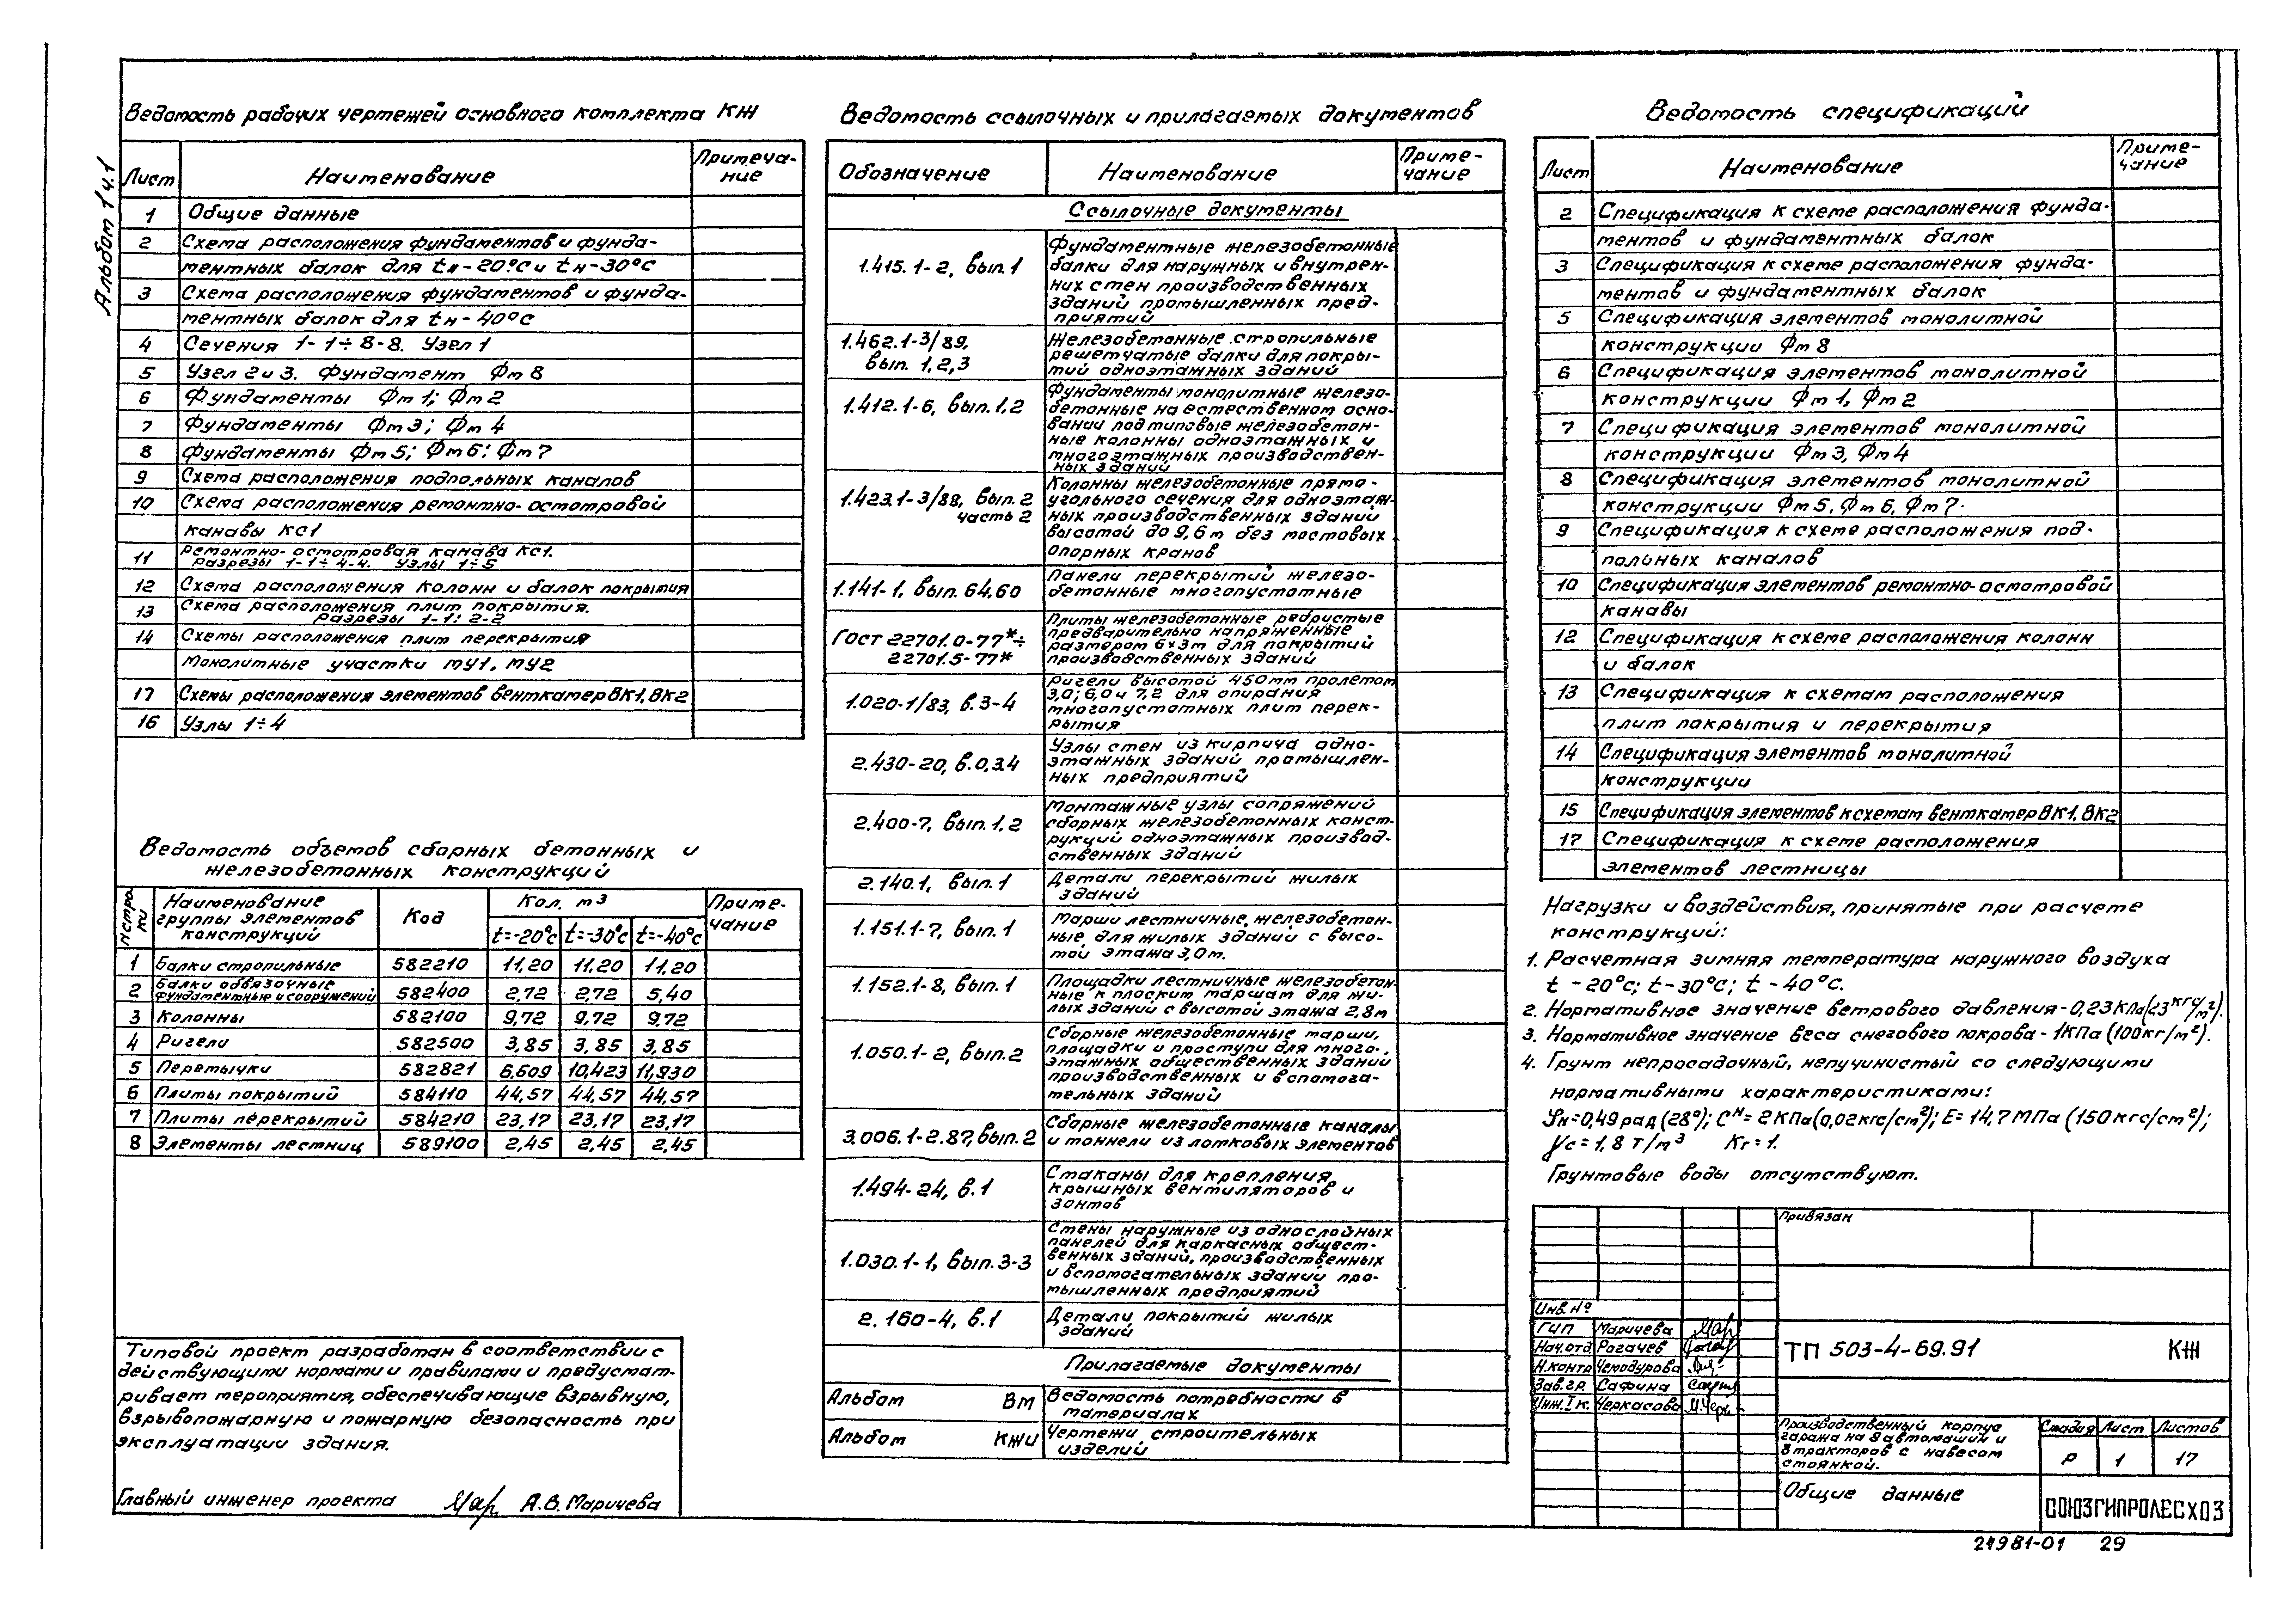 Альбом 1 ч.1
Ведомость рабочих чертежей основного комплекта КЖ
Лист Наименование Примеча-
ние
1 Общие данные
2 Схема расположения фундаментов и фунда-
ментных балок для tн-20°С и tн-30°С
3 Схема расположения фундаментов и фунда-
ментных балок для tн-40°С
4 Сечения 1-1÷8-8. Узел 1
5 Узел 2 и 3. Фундамент Фм 8
6 Фундаменты Фм 1; Фм 2
7 Фундаменты Фм 3; Фм 4
8 Фундаменты Фм 5; Фм 6; Фм 7
9 Схема расположения подпольных каналов
10 Схема расположения ремонтно-осмотровой
канавы КС1
11 Ремонтно-осмотровая канава КС1.
Разрезы 1-1÷4-4. Узлы 1÷5
12 Схема расположения колонн и балок покрытия
13 Схема расположения плит покрытия.
Разрезы 1-1; 2-2
14 Схемы расположения плит перекрытия
Монолитные участки МУ1, МУ2
17 Схемы расположения элементов венткамер ВК1, ВК2
16 Узлы 1÷4
Ведомость объемов сборных бетонных и
железобетонных конструкций
№ строки Наименование группы элементов конструкций Код Кол. м3 Приме-
чание
t=-20°С t=-30°С t=-40°С
1 Балки стропильные 582210 11,20 11,20 11,20
2 Балки обвязочные
фундаментные и сооружений 582400 2,72 2,72 5,40
3 Колонны 582100 9,72 9,72 9,72
4 Ригели 582500 3,85 3,85 3,85
5 Перемычки 582821 6,609 10,423 11,930
6 Плиты покрытий 584110 44,57 44,57 44,57
7 Плиты перекрытий 584210 23,17 23,17 23,17
8 Элементы лестниц 589100 2,45 2,45 2,45
Типовой проект разработан в соответствии с
действующими нормами и правилами и предусмат-
ривает мероприятия, обеспечивающие взрывную,
взрывопожарную и пожарную безопасность при
эксплуатации здания.
Главный инженер проекта А.В. Маричева
Ведомость ссылочных и прилагаемых документов
Обозначение Наименование Приме-
чание
Ссылочные документы
1.415.1-2, вып.1 Фундаментные железобетонные
балки для наружных и внутрен-
них стен производственных
зданий промышленных пред-
приятий
1.462.1-3/89,
вып. 1,2,3 Железобетонные стропильные
решетчатые балки для покры-
тий одноэтажных зданий
1.412.1-6, вып.1,2 Фундаменты монолитные железо-
бетонные на естественном осно-
вании под типовые железобетон-
ные колонны одноэтажных и
многоэтажных производствен-
ных зданий
1.423.1-3/88, вып.2
часть 2 Колонны железобетонные прямо-
угольного сечения для одноэтаж-
ных производственных зданий
высотой до 9,6 м без мостовых
опорных кранов
1.141-1, вып. 64,60 Панели перекрытий железо-
бетонные многопустотные
Гост 22701.0-77*÷
22701.5-77* Плиты железобетонные ребристые
предварительно напряженные
размером 6×3м для покрытий
производственных зданий
1.020-1/83, в.3-4 Ригели высотой 450мм пролетом
3,0; 6,0 и 7,2 для опирания
многопустотных плит перек-
рытия
2.430-20, в.0,3.4 Узлы стен из кирпича одно-
этажных зданий промышлен-
ных предприятий
2.400-7, вып.1,2 Монтажные узлы сопряжений
сборных железобетонных конст-
рукций одноэтажных производ-
ственных зданий
2.140.1, вып.1 Детали перекрытий жилых
зданий
1.151.1-7, вып.1 Марши лестничные, железобетон-
ные, для жилых зданий с высо-
той этажа 3,0м.
1.152.1-8, вып.1 Площадки лестничные железобетон-
ные к плоским маршам для жи-
лых зданий с высотой этажа 2,8м
1.050.1-2, вып.2 Сборные железобетонные марши,
площадки и проступи для много-
этажных общественных зданий
производственных и вспомога-
тельных зданий
3.006.1-2.87, вып.2 Сборные железобетонные каналы
и тоннели из лотковых элементов
1.494-24, в.1 Стаканы для крепления
крышных вентиляторов и
зонтов
1.030.1-1, вып.3-3 Стены наружные из однослойных
панелей для каркасных общест-
венных зданий, производственных
и вспомогательных зданий про-
мышленных предприятий
2.160-4, в.1 Детали покрытий жилых
зданий
Прилагаемые документы
Альбом ВМ Ведомость потребности в
материалах
Альбом КЖИ Чертежи строительных
изделий
Ведомость спецификаций
Лист Наименование Приме-
чание
2 Спецификация к схеме расположения фунда-
ментов и фундаментных балок
3 Спецификация к схеме расположения фунда-
ментов и фундаментных балок
5 Спецификация элементов монолитной
конструкции Фм 8
6 Спецификация элементов монолитной
конструкции Фм 1, Фм 2
7 Спецификация элементов монолитной
конструкции Фм 3, Фм 4
8 Спецификация элементов монолитной
конструкции Фм 5, Фм 6, Фм 7.
9 Спецификация к схеме расположения под-
польных каналов
10 Спецификация элементов ремонтно-осмотровой
канавы
12 Спецификация к схеме расположения колонн
и балок
13 Спецификация к схемам расположения
плит покрытия и перекрытия
14 Спецификация элементов монолитной
конструкции
15 Спецификация элементов к схемам венткамер ВК1, ВК2
17 Спецификация к схеме расположения
элементов лестницы
Нагрузки и воздействия, принятые при расчете
конструкций:
1. Расчетная зимняя температура наружного воздуха
t -20°С; t-30°С; t-40°С.
2. Нормативное значение ветрового давления-0,23КПа(23кгс/м²).
3. Нормативное значение веса снегового покрова-1КПа(100кг/м²).
4. Грунт непросадочный, непучинистый со следующими
нормативными характеристиками:
φн=0,49 рад (28°); Cн=2КПа(0,02кгс/см²); Е=14,7МПа (150кгс/см²);
γс=1,8 т/м³ Кг=1.
Грунтовые воды отсутствуют.
Привязан
Инв.№
ГИП Маричева
Нач.отд Рогачев
Н.контр Чемодурова
Зав.гр. Сафина
Инж.I к. Черкасова
ТП 503-4-69.91 КЖ
Производственный корпус
гаража на 8 автомашин и
8 тракторов с навесом
стоянкой.
Стадия Лист Листов
Р 1 17
Общие данные
СОЮЗГИПРОЛЕСХОЗ
24981-01 29